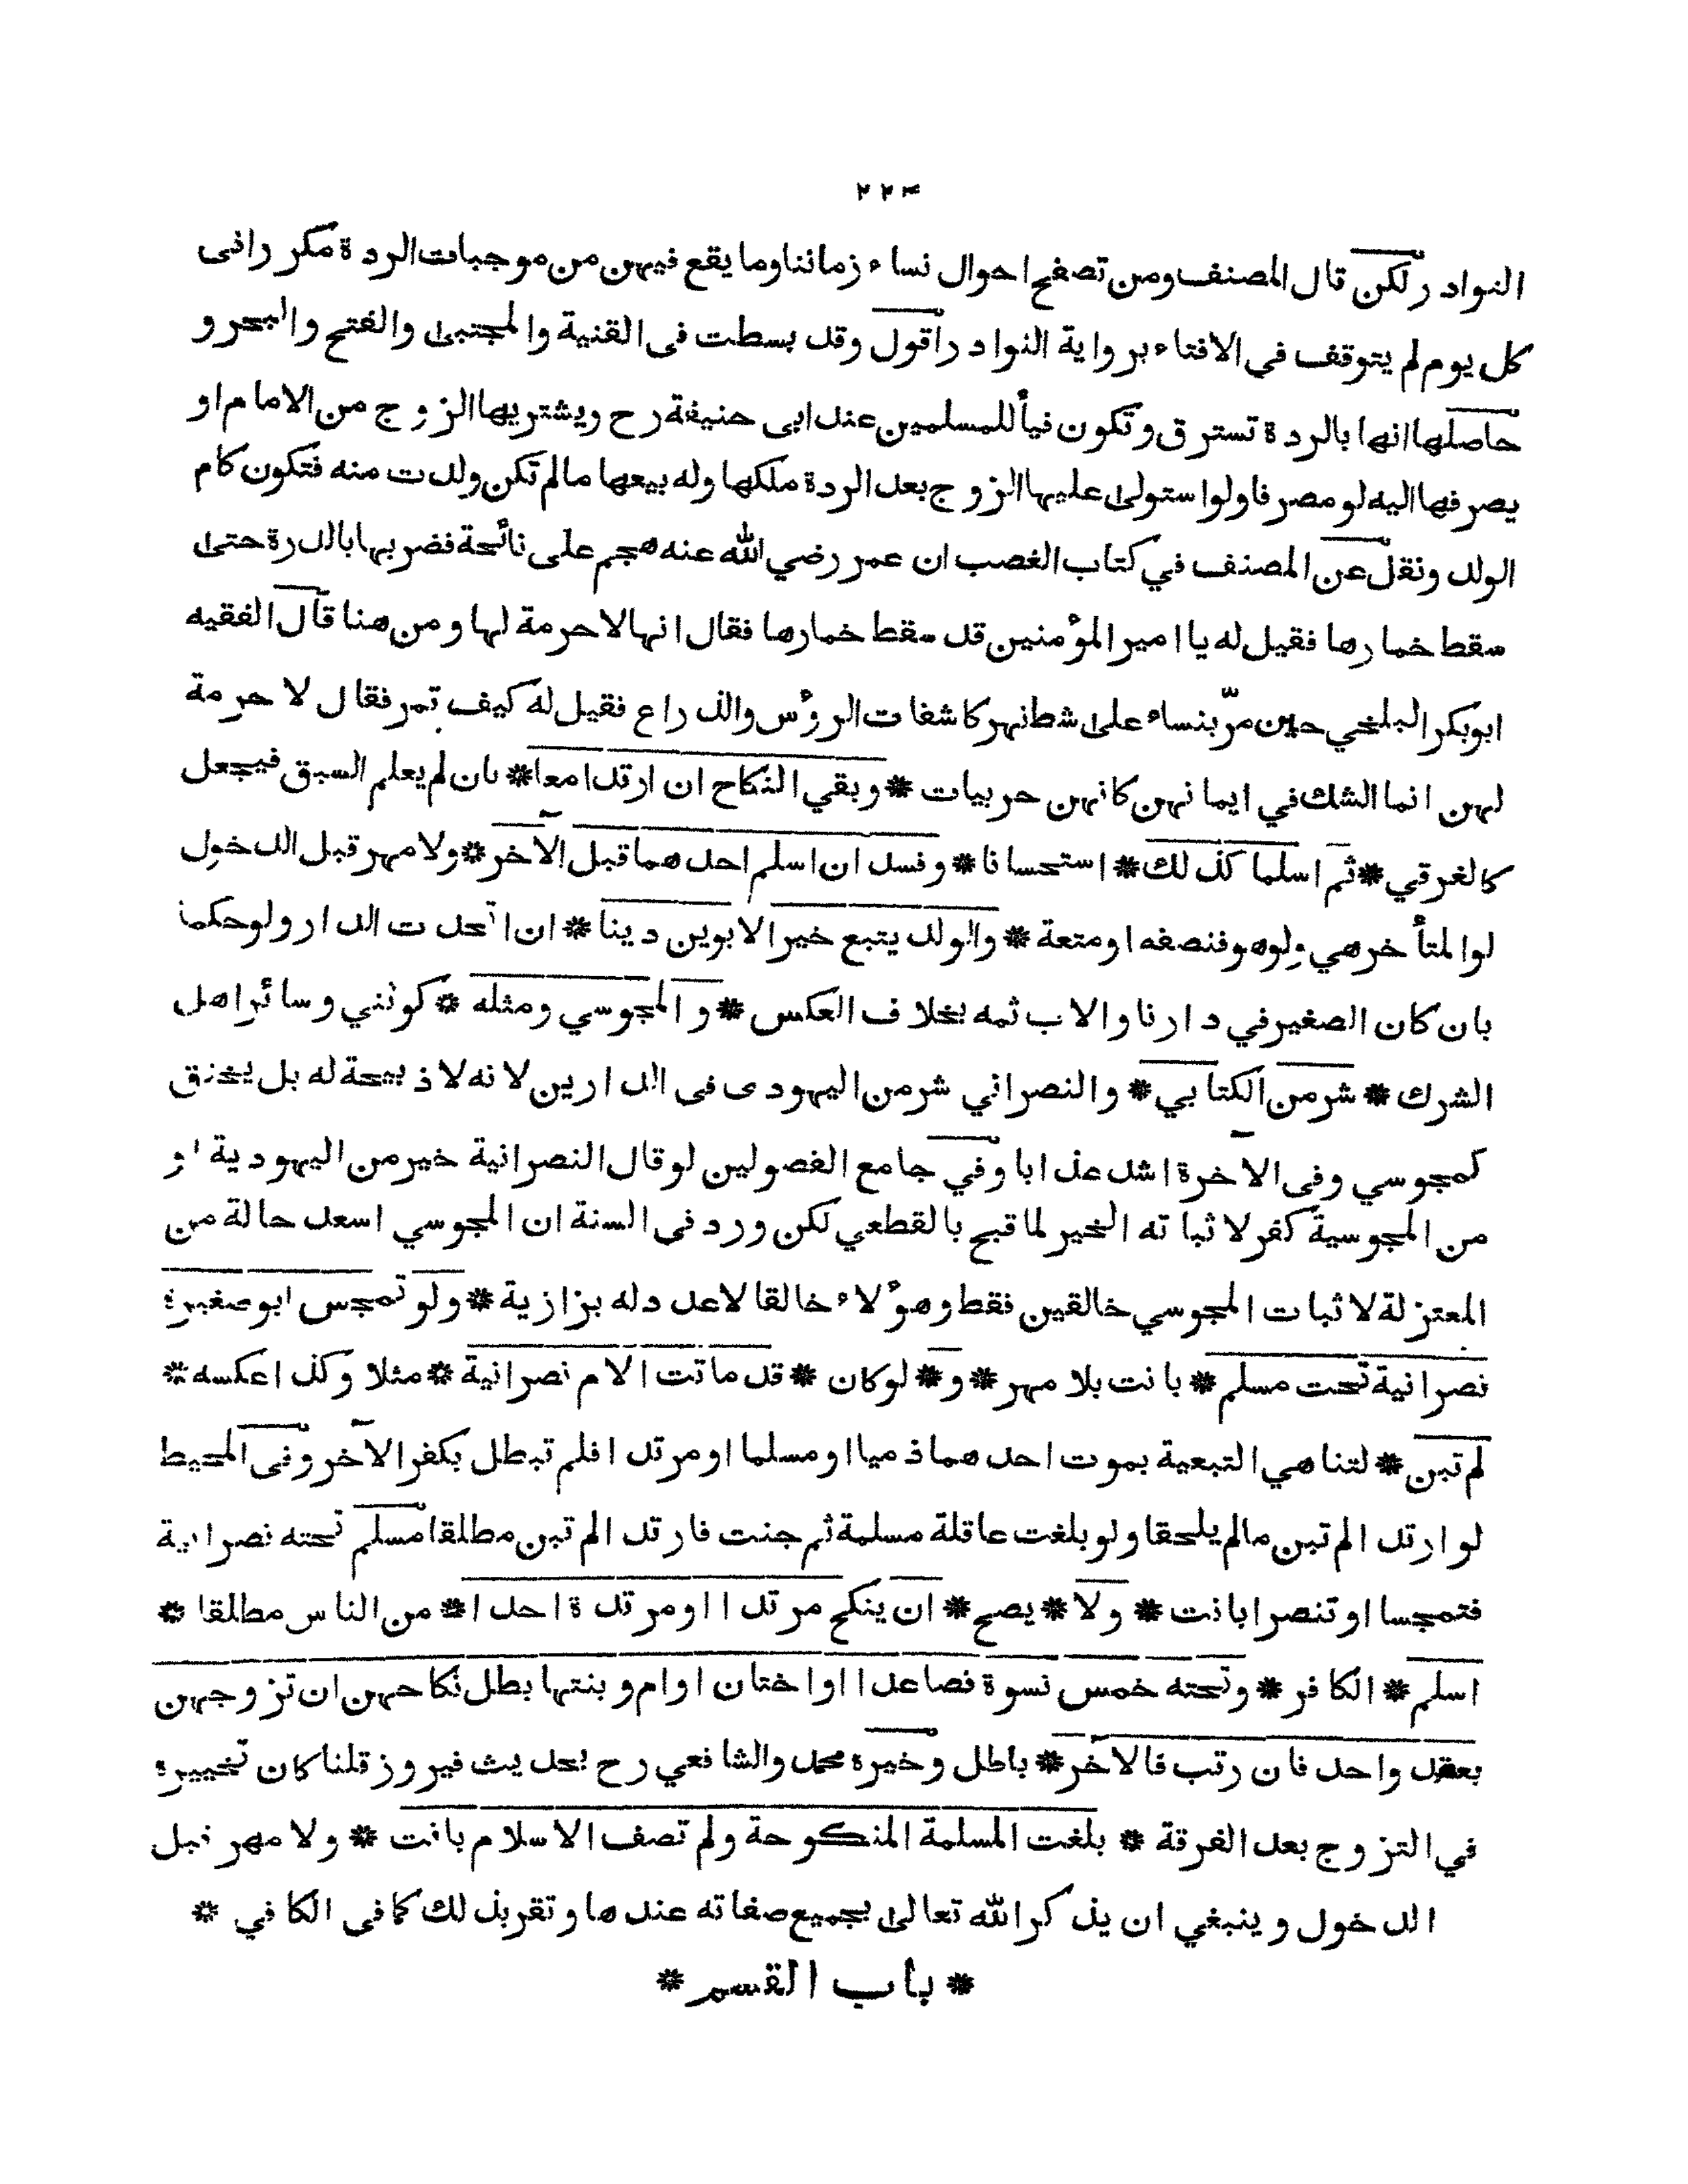 ٢٢٣
النوادر لكن قال المصنف ومن تصفح احوال نساء زماننا وما يقع فيهن من موجبات الردة مكررا فى
كل يوم لم يتوقف في الافتاء برواية النوادر اقول وقد بسطت فى القنية والمجتبى والفتح والبحر و
حاصلها انها بالردة تسترق وتكون فيأ للمسلمين عند ابى حنيفة رح ويشتريها الزوج من الامام او
يصرفها اليه لو مصرفا ولو استولى عليها الزوج بعد الردة ملكها وله بيعها مالم تكن ولدت منه فتكون كام
الولد ونقل عن المصنف في كتاب الغصب ان عمر رضي الله عنه هجم على نائحة فضربها بالدرة حتى
سقط خمارها فقيل له يا امير المؤمنين قد سقط خمارها فقال انها لا حرمة لها ومن هنا قال الفقيه
ابو بكر البلخي حين مرّ بنساء على شط نهر كاشفات الرؤس والذراع فقيل له كيف تمر فقال لا حرمة
لهن انما الشك في ايمانهن كانهن حربيات * وبقي النكاح ان ارتدا معا * بان لم يعلم السبق فيجعل
كالغرقي * ثم اسلما كذلك * استحسانا * وفسد ان اسلم احدهما قبل الآخر * ولا مهر قبل الدخول
لو المتأخر هي ولو هو فنصفه او متعة * والولد يتبع خير الابوين دينا * ان اتحدت الدار ولو حكما
بان كان الصغير في دارنا والاب ثمه بخلاف العكس * و المجوسي ومثله * كوثني وسائر اهل
الشرك * شر من الكتابي * والنصراني شر من اليهودى فى الدارين لانه لا ذبيحة له بل يخنق
كمجوسي وفى الآخرة اشد عذابا وفي جامع الفصولين لو قال النصرانية خير من اليهودية او
من المجوسية كفر لاثباته الخير لما قبح بالقطعي لكن ورد فى السنة ان المجوسي اسعد حالة من
المعتزلة لاثبات المجوسي خالقين فقط وهؤلاء خالقا لا عدد له بزازية * ولو تمجس ابو صغيرة
نصرانية تحت مسلم * بانت بلا مهر * و * لو كان * قد ماتت الام نصرانية * مثلا وكذا عكسه *
لم تبن * لتناهي التبعية بموت احدهما ذميا او مسلما او مرتدا فلم تبطل بكفر الآخر وفى المحيط
لو ارتدا لم تبن مالم يلحقا ولو بلغت عاقلة مسلمة ثم جنت فارتدا لم تبن مطلقا مسلم تحته نصرانية
فتمجسا او تنصرا بانت * ولا * يصح * ان ينكح مرتد ا او مرتدة احدا * من الناس مطلقا *
اسلم * الكافر * وتحته خمس نسوة فصاعدا او اختان او ام وبنتها بطل نكاحهن ان تزوجهن
بعقد واحد فان رتب فالآخر * باطل وخيره محمد والشافعي رح بحديث فيروز قلنا كان تخييره
في التزوج بعد الفرقة * بلغت المسلمة المنكوحة ولم تصف الاسلام بانت * ولا مهر قبل
الدخول وينبغي ان يذكر الله تعالى بجميع صفاته عندها وتقر بذلك كما فى الكافي *
* باب القسم *